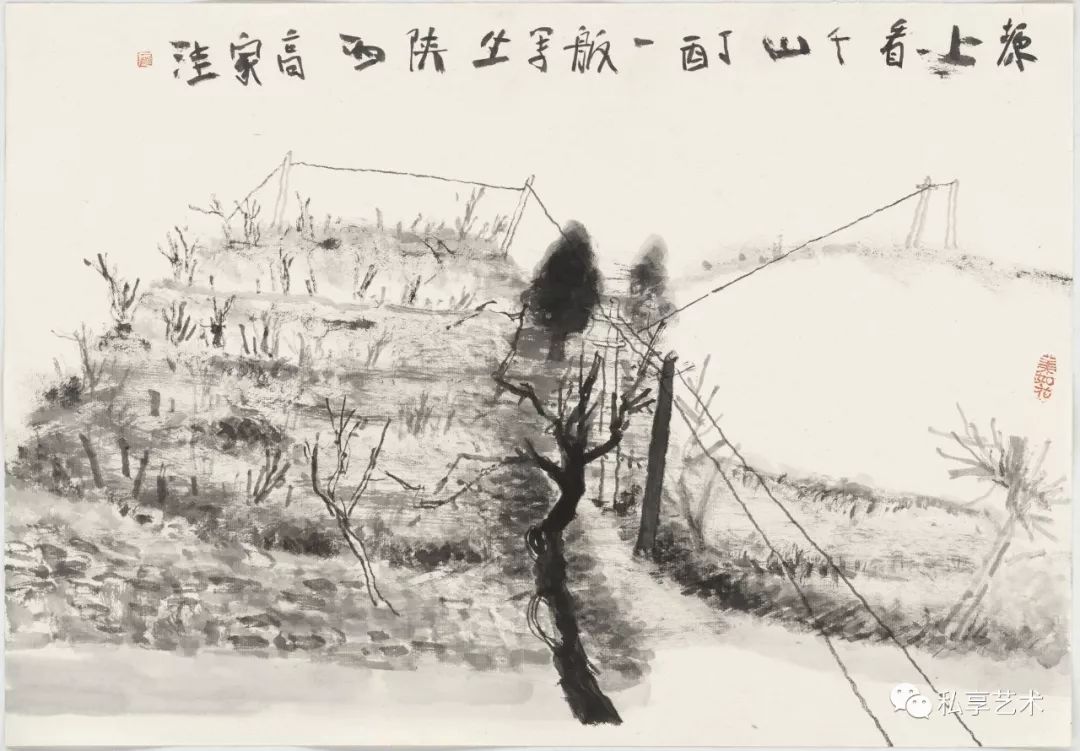 塬上看千山丁酉一般写生陕西高家洼
私享艺术